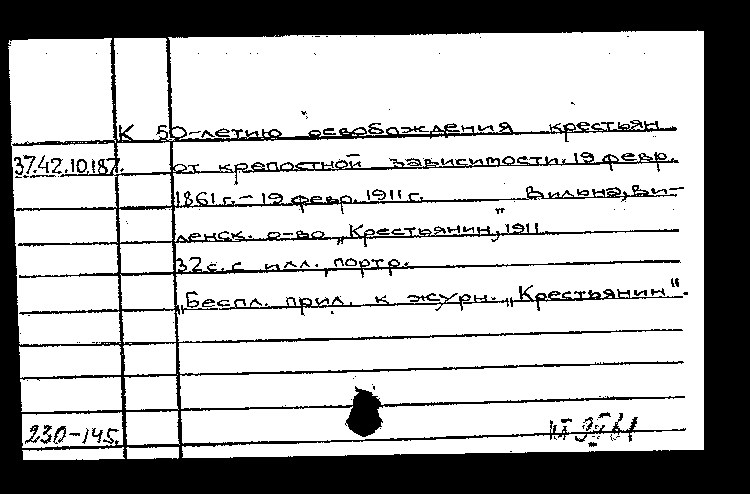 К 50-летию освобождения крестьян
37.42.10.187. от крепостной зависимости. 19 февр.
1861 г. - 19 февр. 1911 г. Вильна, Ви-
ленск. о-во „Крестьянин", 1911.
32 с. с илл., портр.
„Беспл. прил. к журн. „Крестьянин".
230-145.